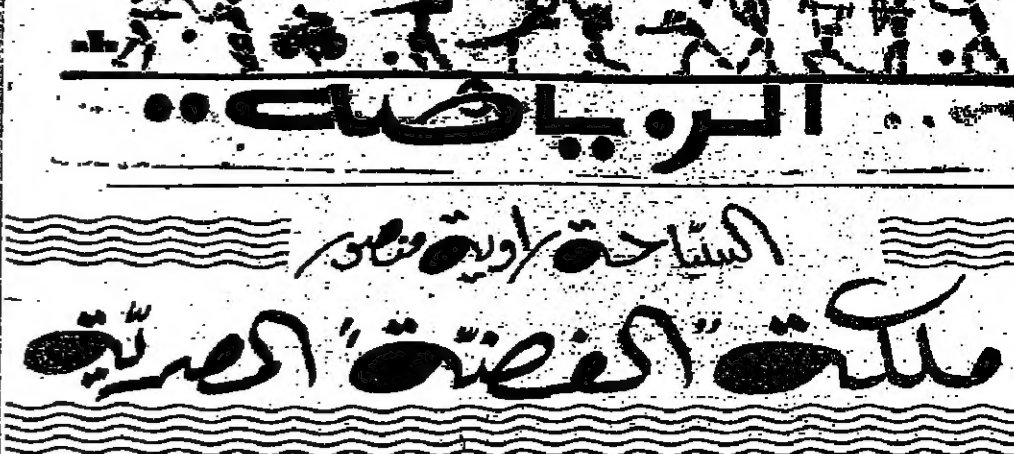 الرياضة..
السبّاحة راوية منصور
ملكة "الفضيّة" المصريّة